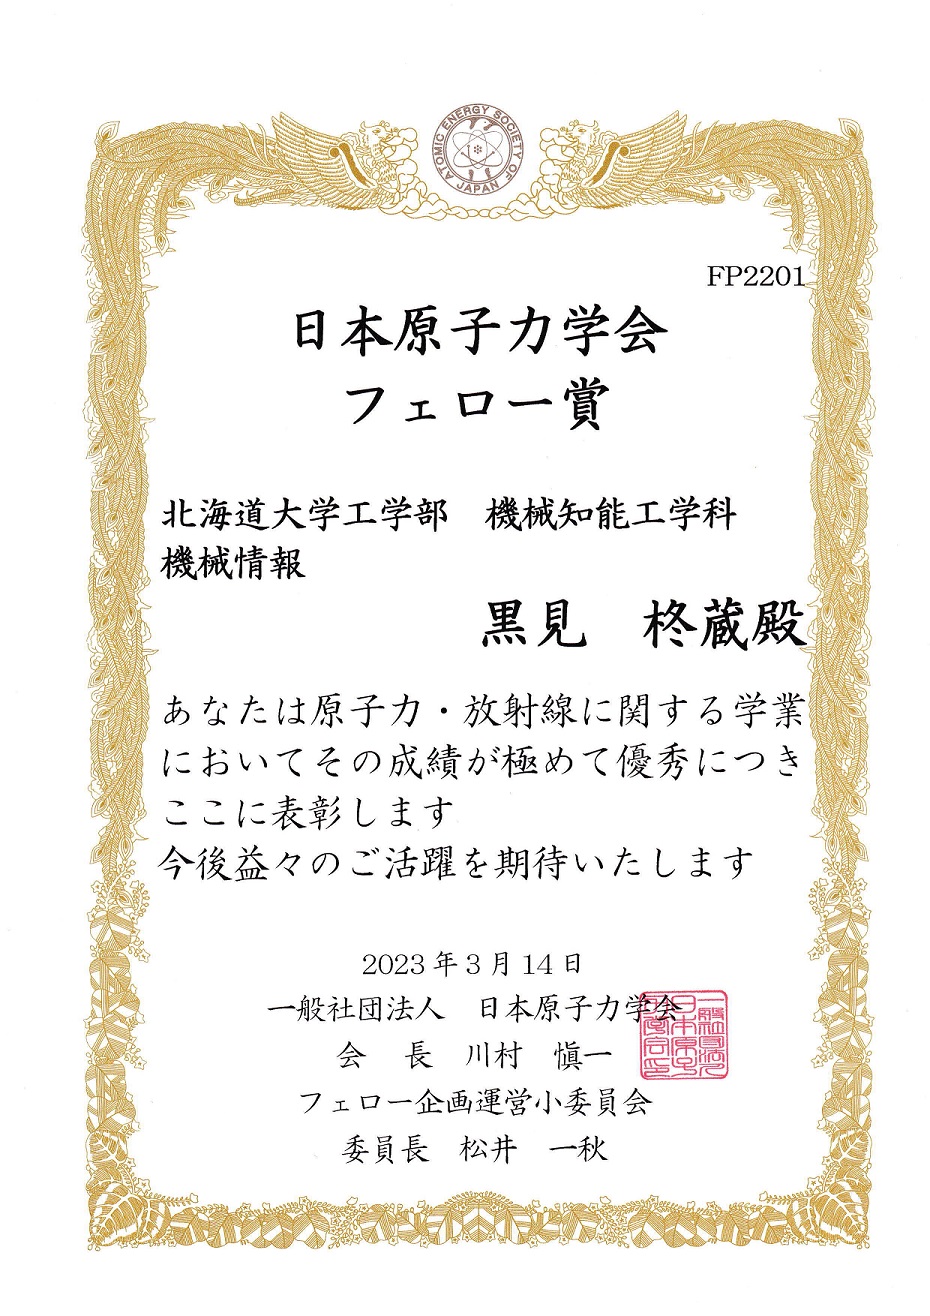 ATOMIC ENERGY SOCIETY OF JAPAN
FP2201
日本原子力学会
フェロー賞
北海道大学工学部 機械知能工学科
機械情報
黒見 柊蔵殿
あなたは原子力・放射線に関する学業
においてその成績が極めて優秀につき
ここに表彰します
今後益々のご活躍を期待いたします
2023年3月14日
一般社団法人 日本原子力学会
会 長 川村 愼一
フェロー企画運営小委員会
委員長 松井 一秋